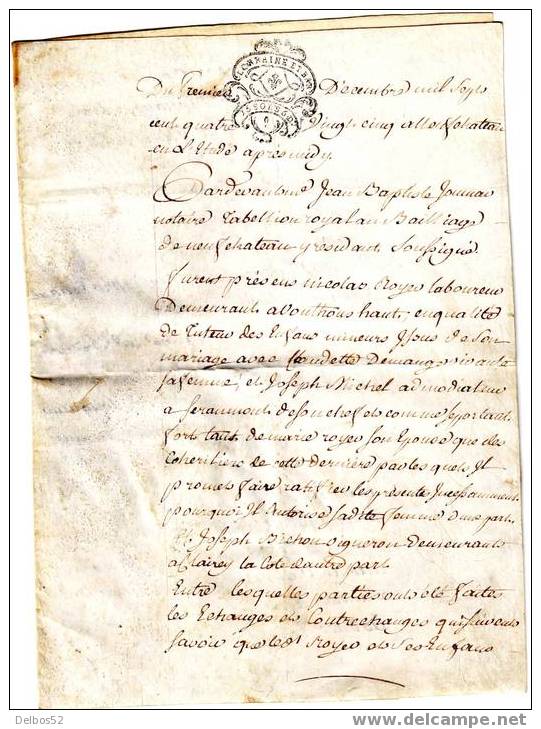 LORRAINE ET BAR
SOLS
Du Premier Decembre mil Sept
cent quatre vingt cinq a Neufchateau
en L'Etude apres midy
Pardevant me Jean Baptiste
notaire Tabellion royal au Bailliage
de neufchateau y residant Soussigné
furent présens nicolas Royer laboureur
Demeurant a Vouthons haut, en qualité
de Tuteur des Enfans mineurs Issus de Son
mariage avec Claudette Demange vivante
sa femme, et Joseph Michel admodiateur
a Seraumont de Son chef et comme Se portant
fort tant de marie royer Son Epouse que des
Coheritiers de cette derniere par les quels Il
promet faire ratifier les présente Incessamment
pourquoi Il Autorise sadite femme d'une part.
Et Joseph Bichon vigneron demeurant
a Clairey la Cote d'autre part
Entre les quelles parties ont été faites
les Echanges et Contrechanges qui suivent
Savoir que led. Royer et Ses Enfans
Delbos52
www.delcampe.net